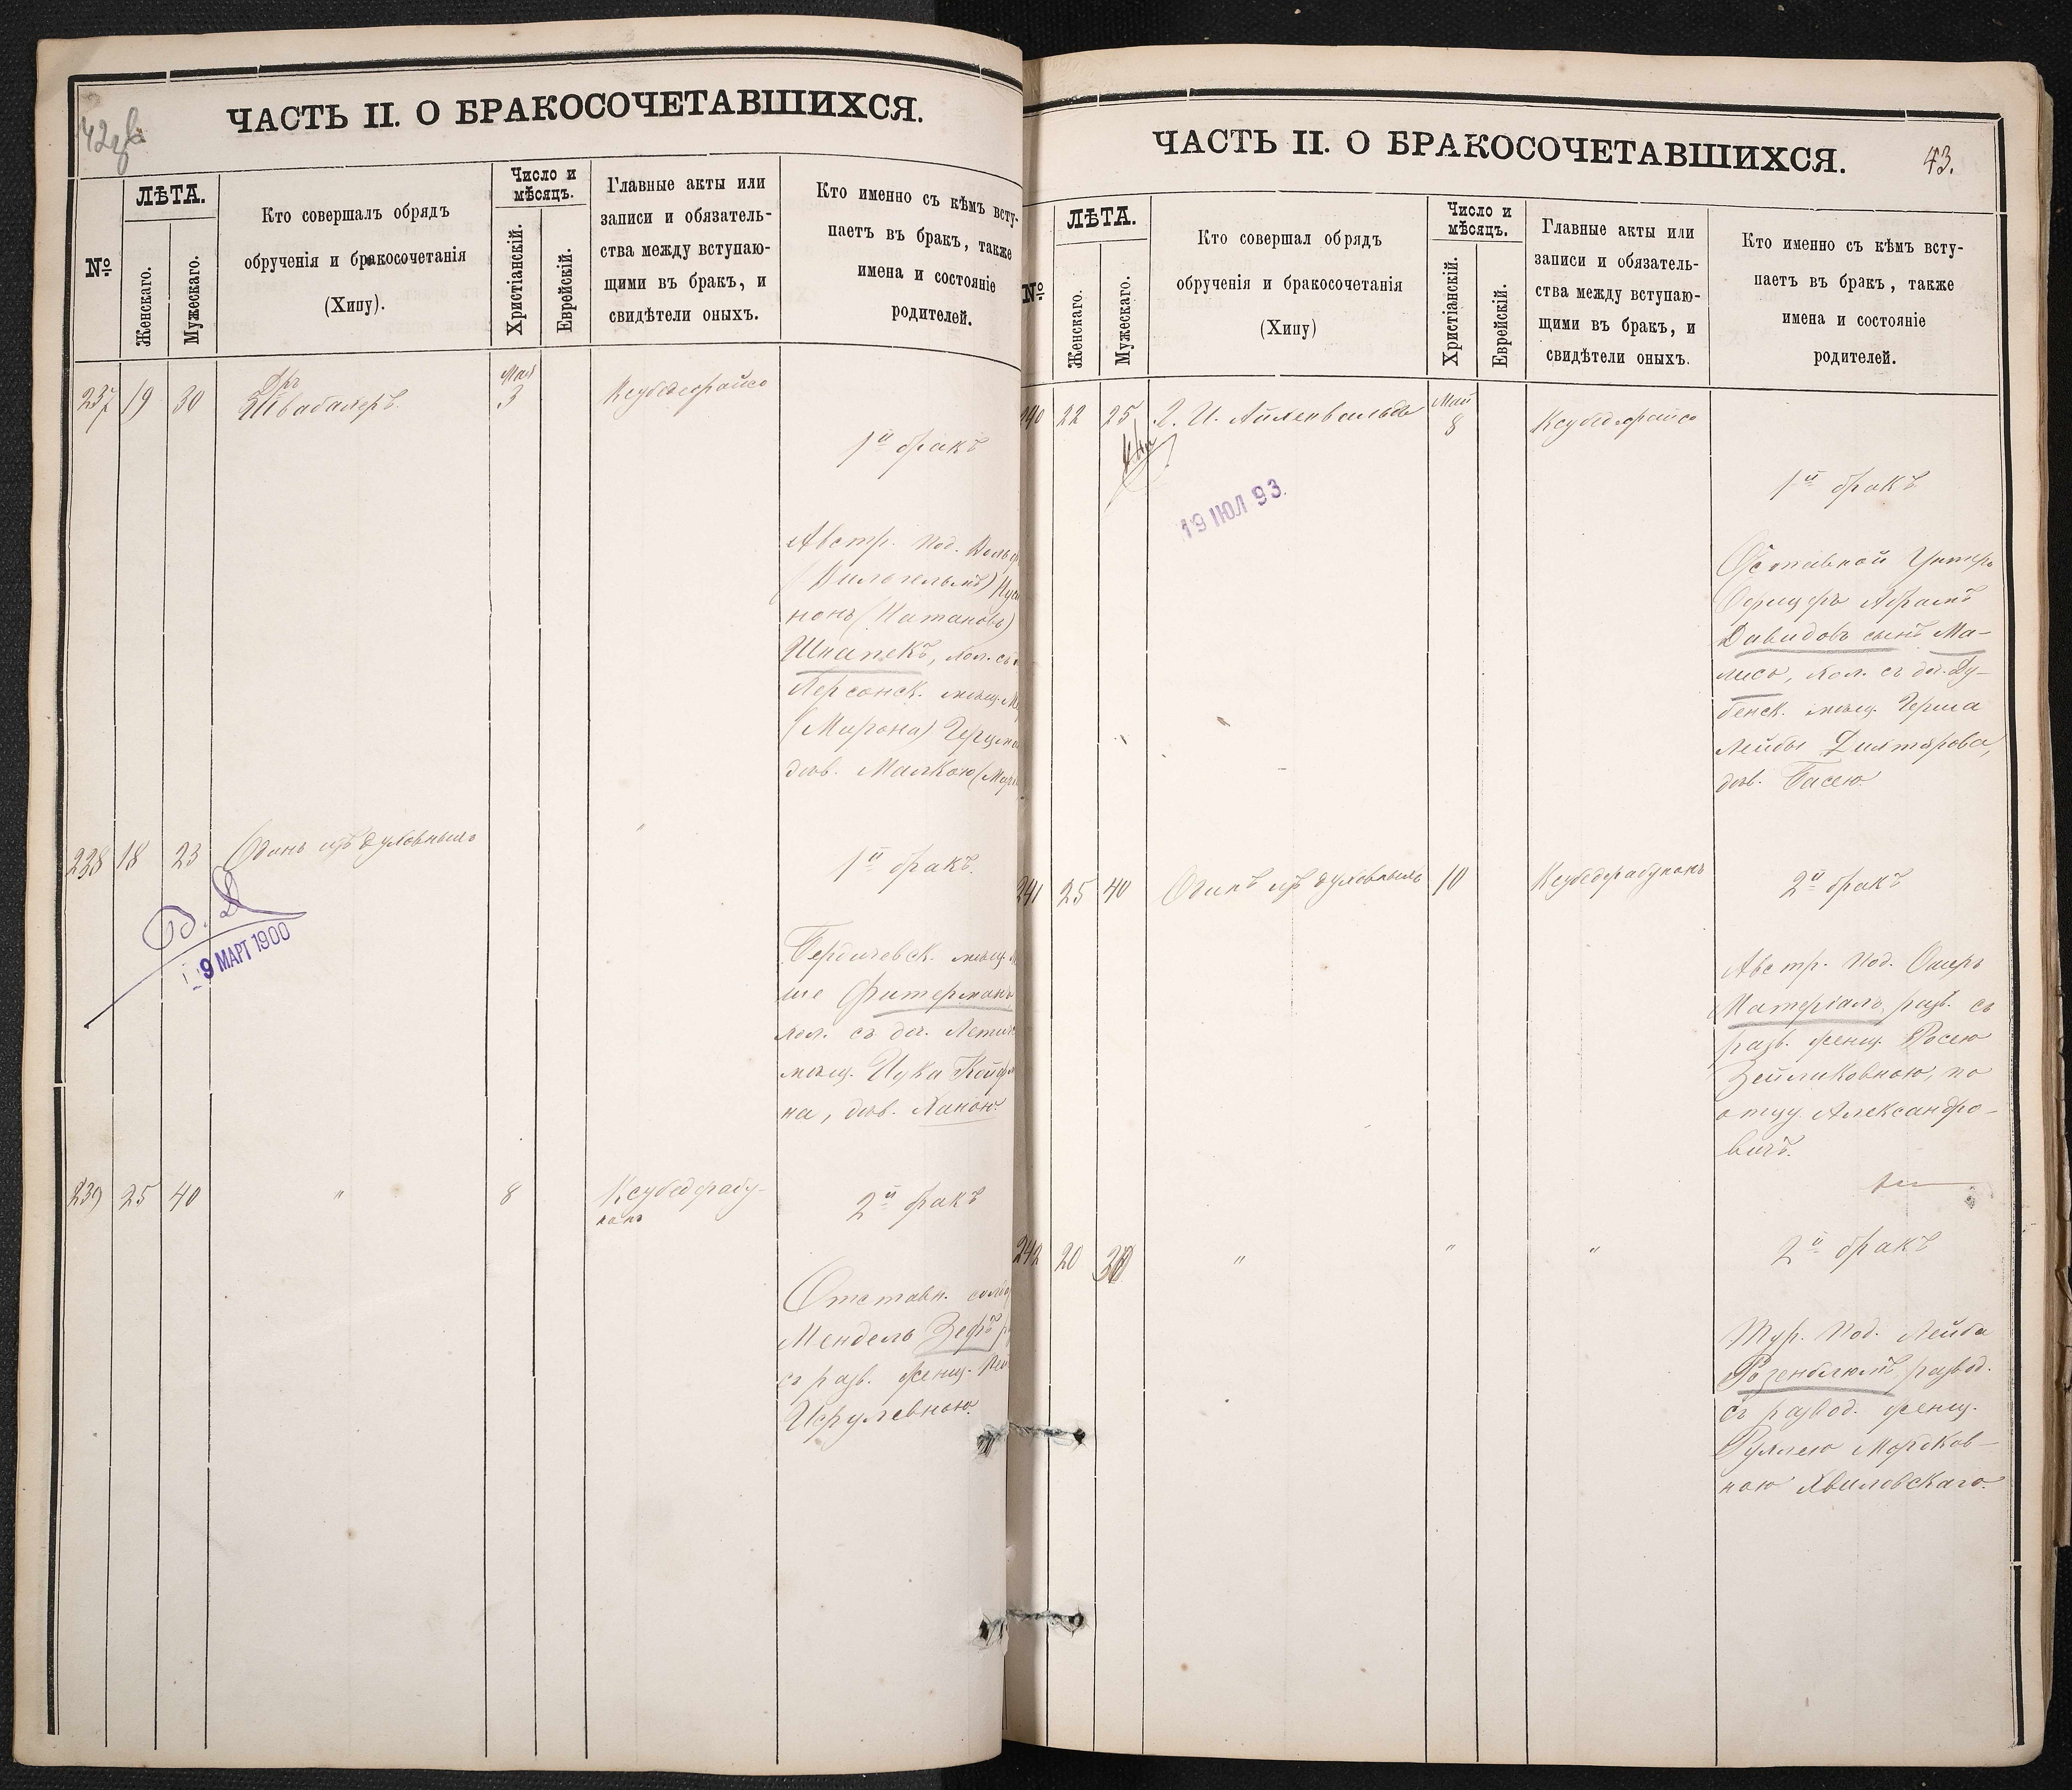 ЧАСТЬ II. О БРАКОСОЧЕТАВШИХСЯ.
№
ЛѢТА.
Женскаго.
Мужескаго.
Кто совершалъ обрядъ
обрученія и бракосочетанія
(Хипу).
Число и
мѣсяцъ.
Христіанскій.
Еврейскій.
Главные акты или
записи и обязатель-
ства между вступаю-
щими въ бракъ, и
свидѣтели оныхъ.
Кто именно съ кѣмъ всту-
паетъ въ бракъ, также
имена и состояніе
родителей.
237 19 30
Др
Швабахеръ.
Мая
3
Ксубедерайсо
1й бракъ
Австр. Под.
(Вильгельмъ)
нонъ (Натановъ)
Шнапекъ, хол. съ
Херсонск. мѣщ.
(Мирона)
дѣв. Малкою
238 18 23
Одинъ изъ духовныхъ
1й бракъ.
9 МАРТ 1900
Бердичевск. мѣщ.
ше Фитерманъ
хол. съ доч.
мѣщ. Ицка
на, дѣв. Ханою.
239 25 40 " 8
Ксубедерабу-
нонъ
2й бракъ
Отставн.
Мендель Зефъ
съ разв. женщ.
Исрулевною.
ЧАСТЬ II. О БРАКОСОЧЕТАВШИХСЯ.
43.
№
ЛѢТА.
Женскаго.
Мужескаго.
Кто совершал обрядъ
обрученія и бракосочетанія
(Хипу)
Число и
мѣсяцъ.
Христіанскій.
Еврейскій.
Главные акты или
записи и обязатель-
ства между вступаю-
щими въ бракъ, и
свидѣтели оныхъ.
Кто именно съ кѣмъ всту-
паетъ въ бракъ, также
имена и состояніе
родителей.
240 22 25
Х. И. Айхенвальдъ
Май
8
Ксубедерайсо
19 ІЮЛ 93.
1й бракъ
Отставной Унтеръ
Офицеръ Абрамъ
Давидовъ сынъ Ма-
лисъ, хол. съ доч. Ду-
бенск. мѣщ. Герша
Лейбы
дѣв. Басею.
241 25 40
Одинъ изъ духовныхъ
10
Ксубедерабунонъ
2й бракъ
Австр. Под. Ошеръ
Матеріалъ, разв. съ
разв. женщ. Росею
Зейликовною, по
отцу Александро-
вичъ.
242 20 30 " " "
2й бракъ
Тур. Под. Лейба
Розенблюмъ развод.
съ развод. женщ.
Рухлею Мордков-
ною Хвиловскаго.